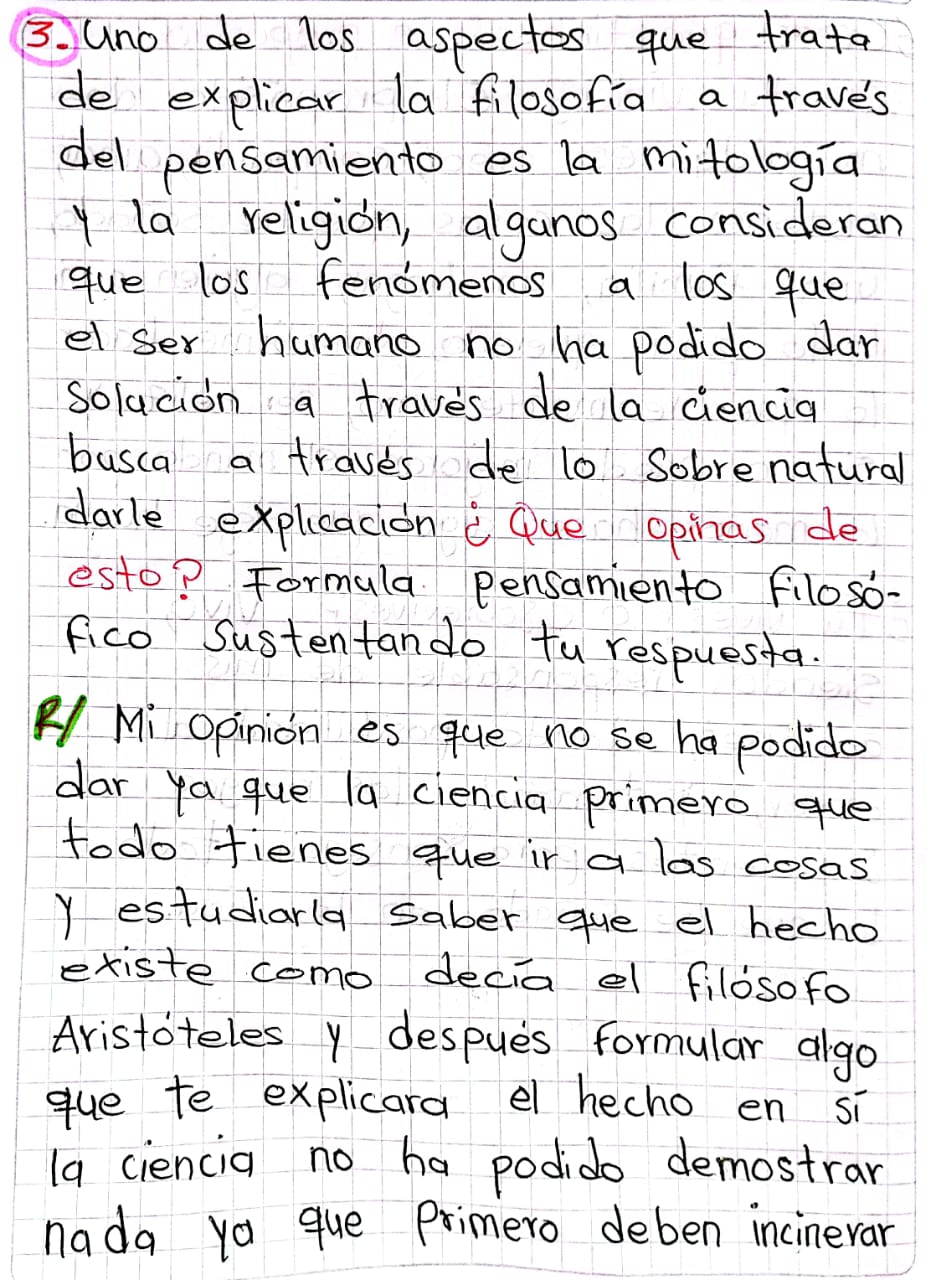 3. Uno de los aspectos que trata
de explicar la filosofía a través
del pensamiento es la mitología
y la religión, algunos consideran
que los fenómenos a los que
el ser humano no ha podido dar
solución a través de la ciencia
busca a través de lo sobre natural
darle explicación ¿Que opinas de
esto? Formula pensamiento filosó-
fico sustentando tu respuesta.
R/ Mi opinión es que no se ha podido
dar ya que la ciencia primero que
todo tienes que ir a las cosas
y estudiarla saber que el hecho
existe como decía el filósofo
Aristóteles y después formular algo
que te explicara el hecho en sí
la ciencia no ha podido demostrar
nada ya que primero deben incinerar